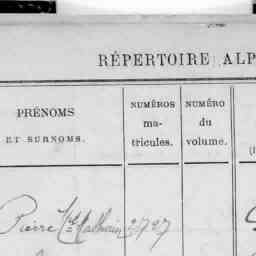 RÉPERTOIRE ALP
PRÉNOMS
ET SURNOMS.
NUMÉROS
ma-
tricules.
NUMÉRO
du
volume.
Pierre 2727